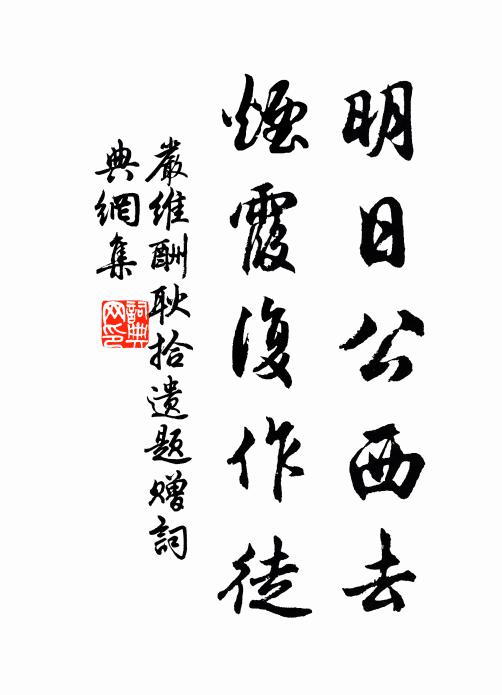 明日公西去
煙霞復作徒
嚴維酬耿拾遺題贈詞
典網集
詞典網印